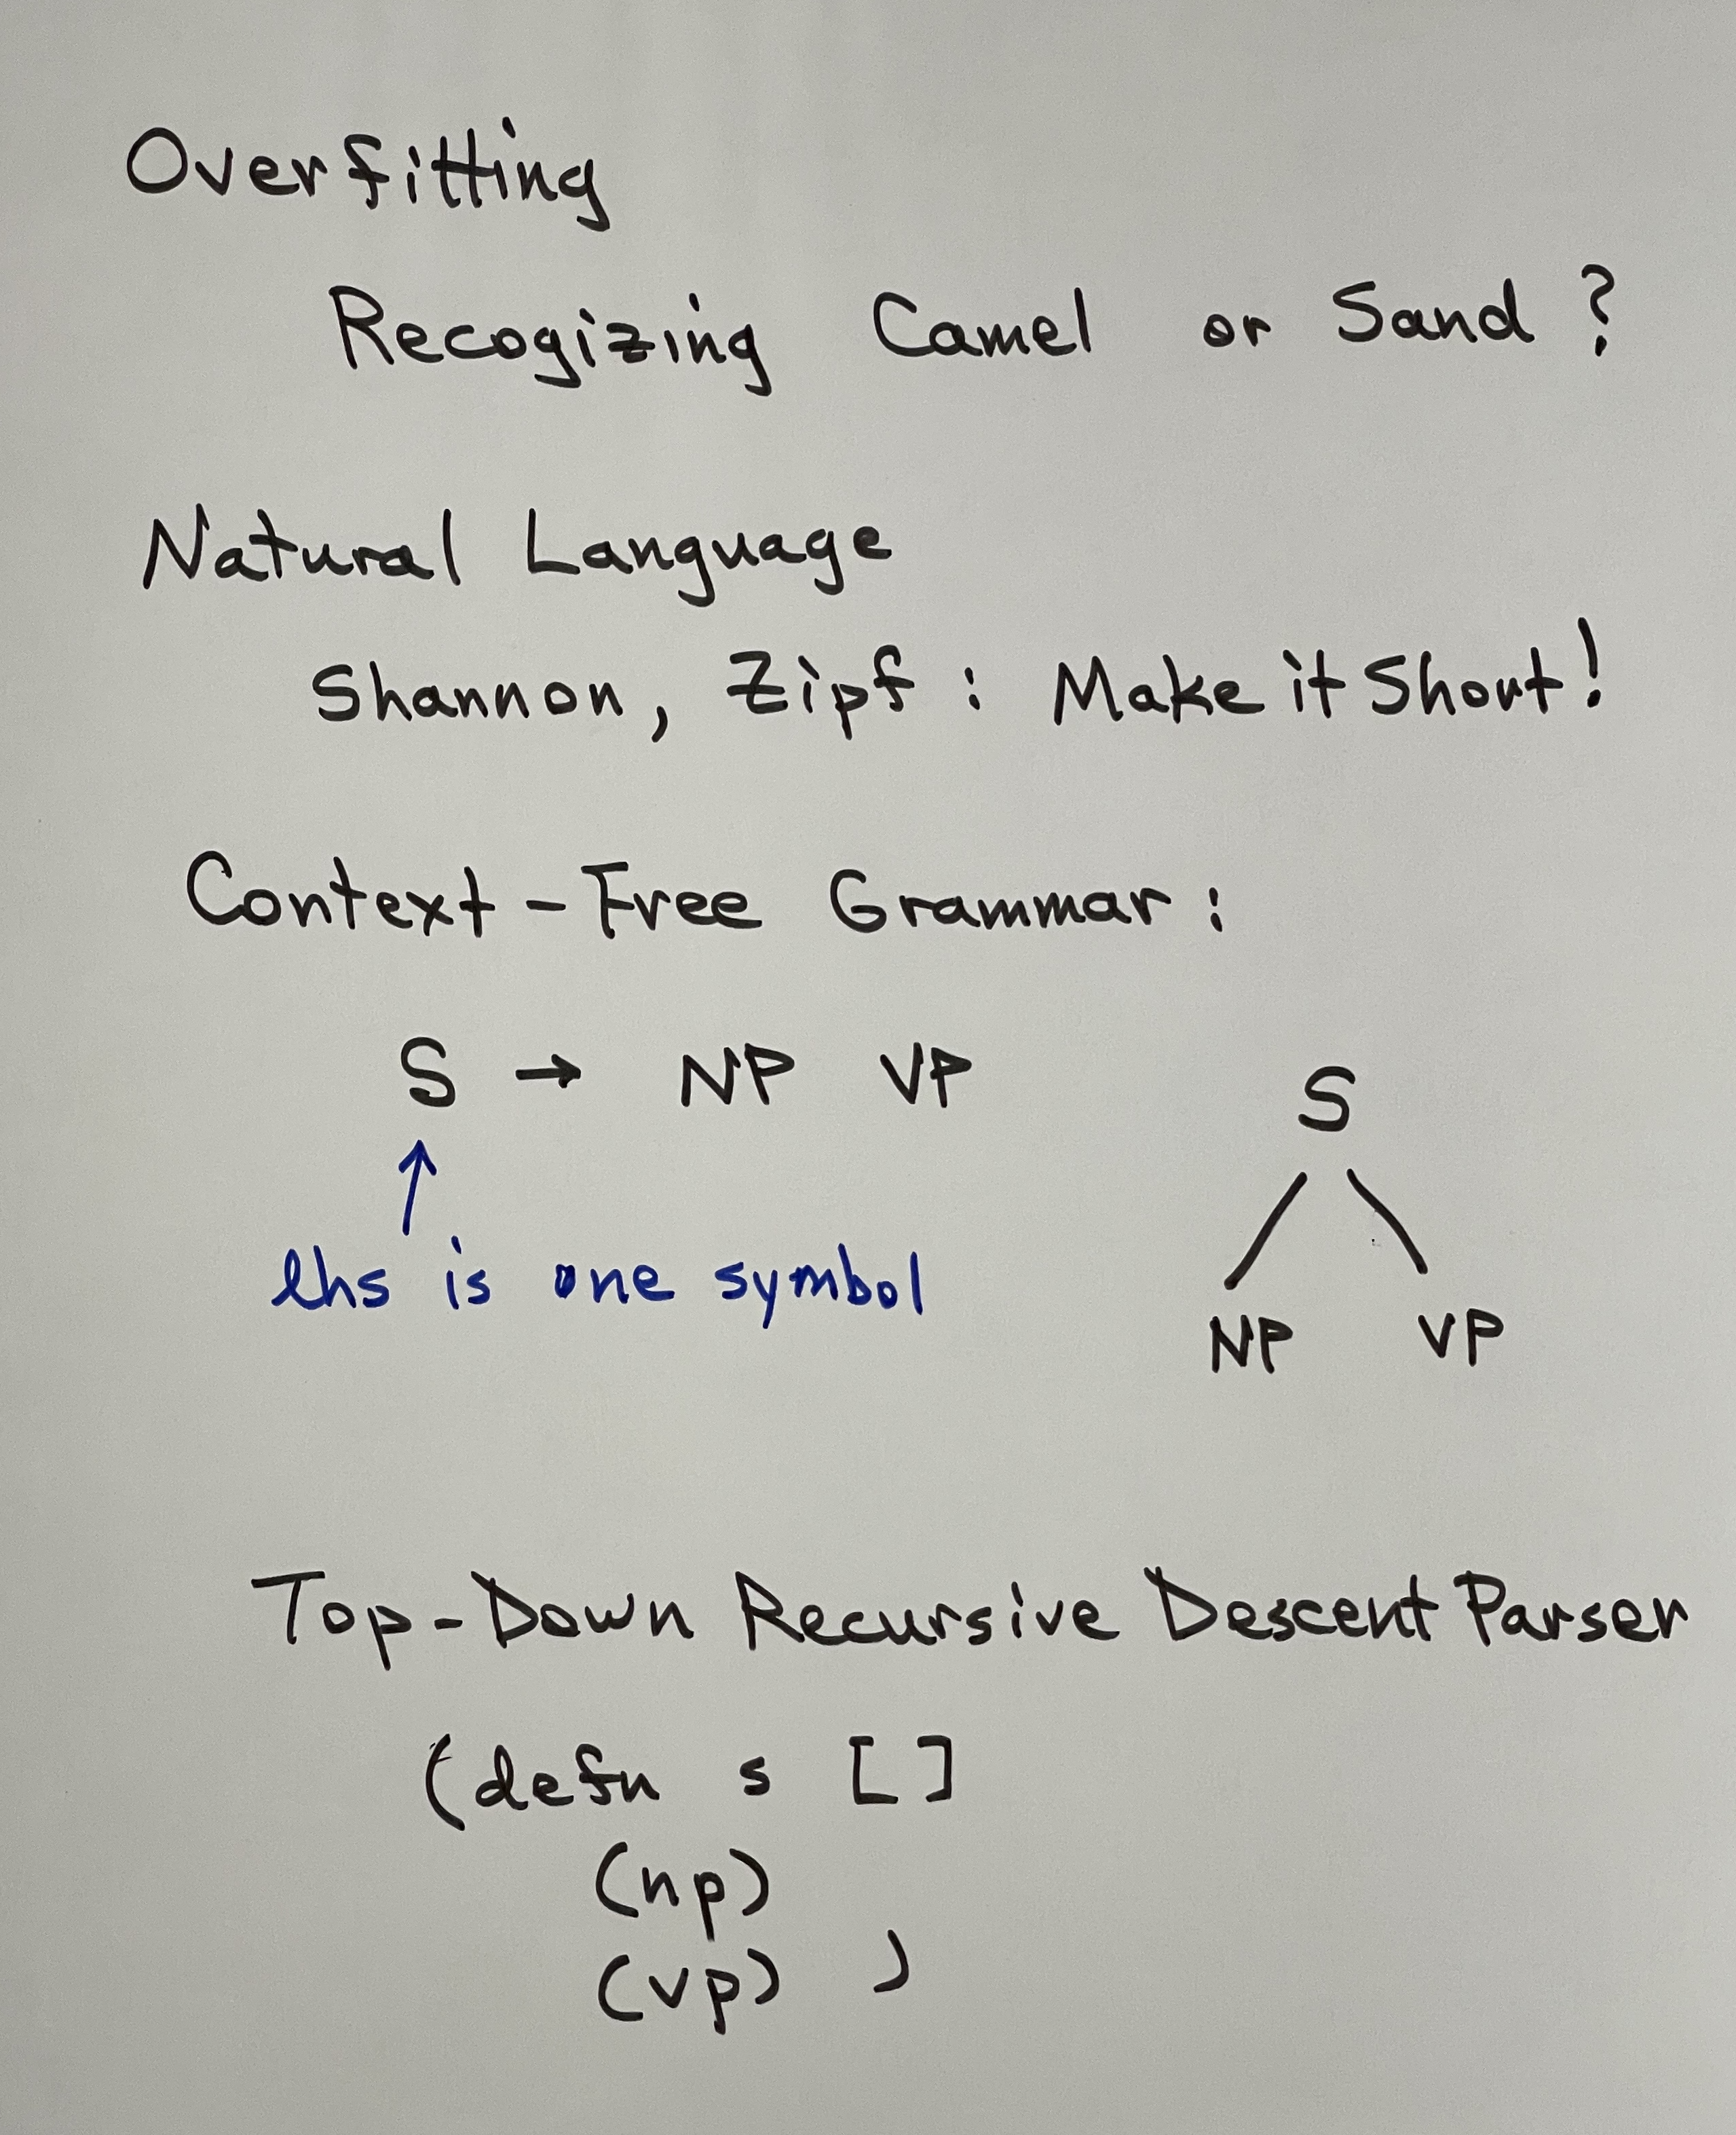 Overfitting
Recogizing Camel or Sand ?
Natural Language
Shannon, Zipf : Make it Short!
Context-Free Grammar :
S → NP VP
↑
lhs is one symbol
S
NP VP
Top-Down Recursive Descent Parser
(defn s [ ]
(np)
(vp) )